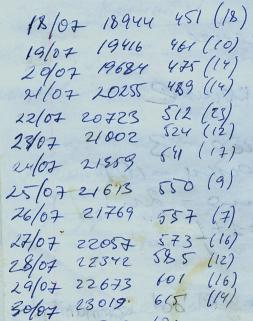 18/07 18944 451 (18)
19/07 19416 461 (10)
20/07 19684 475 (14)
21/07 20255 489 (14)
22/07 20723 512 (23)
23/07 21002 524 (12)
24/07 21359 541 (17)
25/07 21613 550 (9)
26/07 21769 557 (7)
27/07 22057 573 (16)
28/07 22342 585 (12)
29/07 22673 601 (16)
30/07 23019 615 (14)